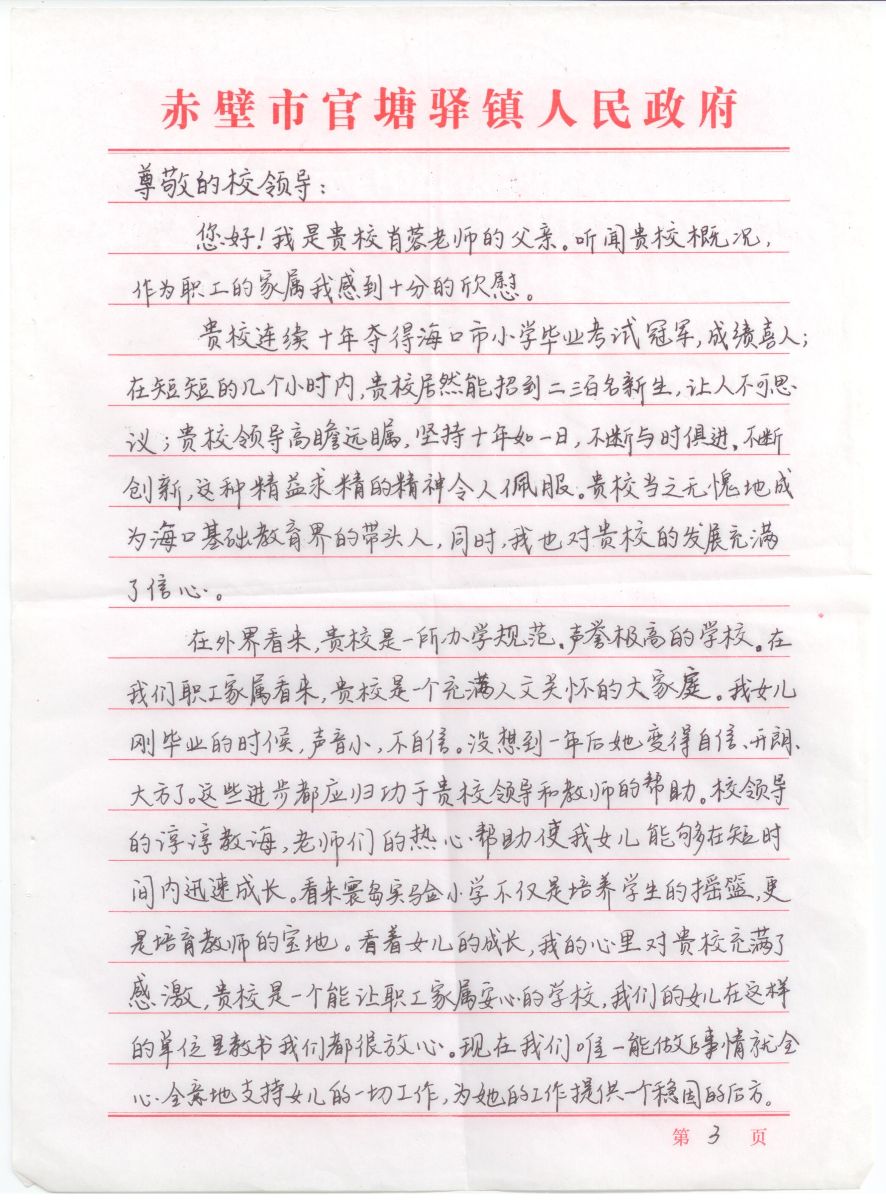 赤壁市官塘驿镇人民政府
尊敬的校领导：
您好！我是贵校肖蓉老师的父亲。听闻贵校概况，
作为职工的家属我感到十分的欣慰。
贵校连续十年夺得海口市小学毕业考试冠军，成绩喜人；
在短短的几个小时内，贵校居然能招到二三百名新生，让人不可思
议；贵校领导高瞻远瞩，坚持十年如一日，不断与时俱进、不断
创新，这种精益求精的精神令人佩服。贵校当之无愧地成
为海口基础教育界的带头人，同时，我也对贵校的发展充满
了信心。
在外界看来，贵校是一所办学规范、声誉极高的学校。在
我们职工家属看来，贵校是一个充满人文关怀的大家庭。我女儿
刚毕业的时候，声音小，不自信。没想到一年后她变得自信、开朗、
大方了。这些进步都应归功于贵校领导和教师的帮助。校领导
的谆谆教诲，老师们的热心帮助使我女儿能够在短时
间内迅速成长。看来寰岛实验小学不仅是培养学生的摇篮，更
是培育教师的宝地。看着女儿的成长，我的心里对贵校充满了
感激，贵校是一个能让职工家属安心的学校，我们的女儿在这样
的单位里教书我们都很放心。现在我们唯一能做的事情就全
心全意地支持女儿的一切工作，为她的工作提供一个稳固的后方。
第 3 页